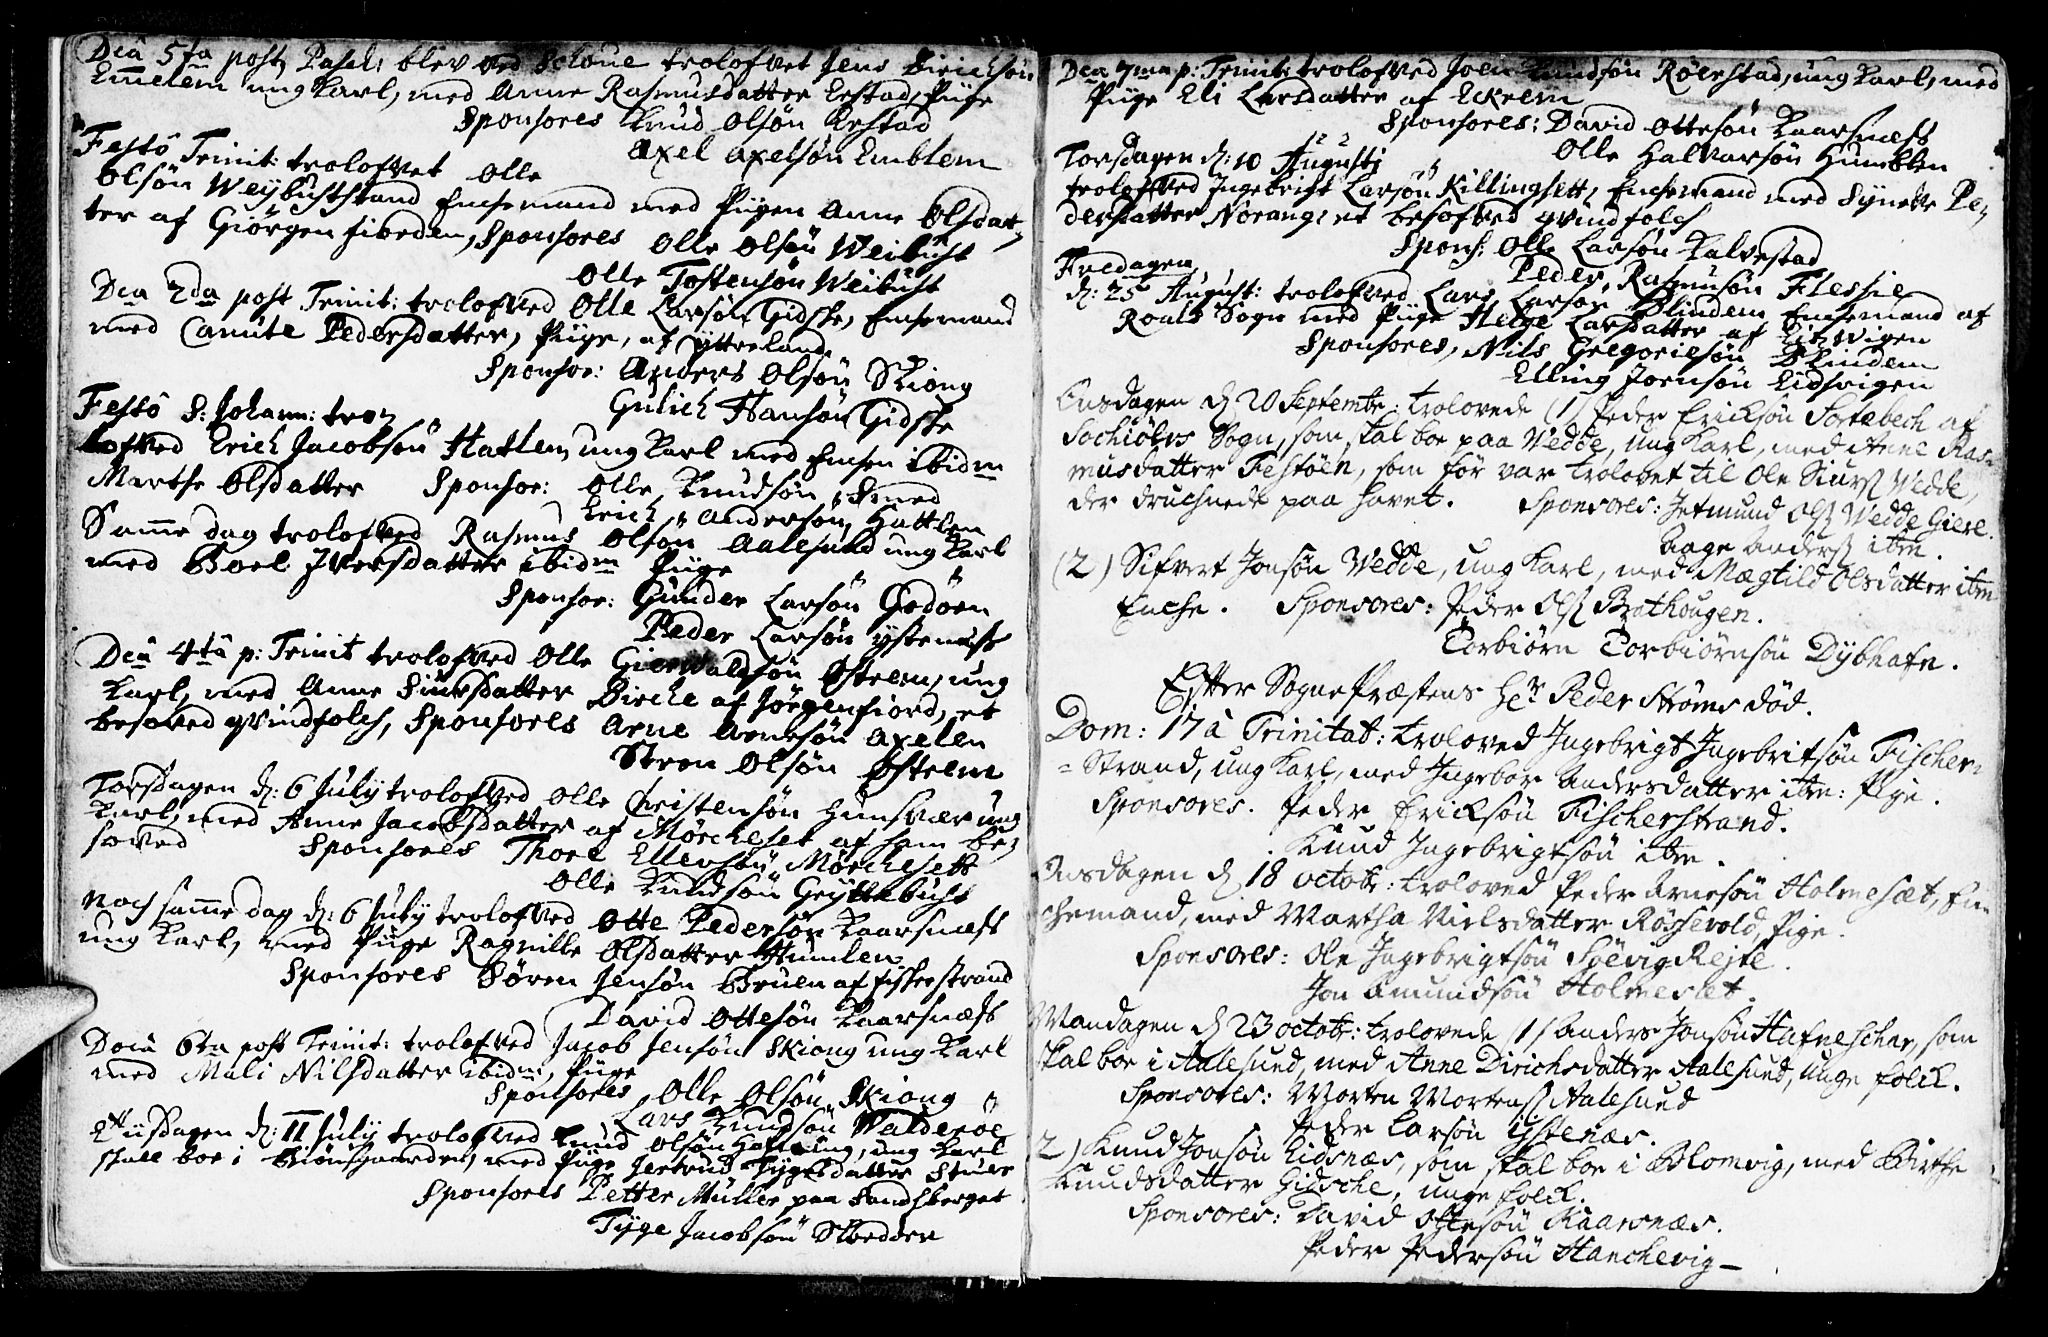 Dca 5ta post Pasch: blev ved Schone trolofvet Jens Dirichsøn
Emelem ung Karl, med Anne Rasmusdatter Erstad, Piige
Sponsores Knud Olsøn Erstad
Axel Axelsøn Emblem
Festo Trinit: trolofvet Olle
Olsøn Weybuchtstand Enchemand med Piigen Anne Olsdat¬
ter af Giørgenfiorden, Sponsores Olle Olsøn Weibucht
Olle Tostensøn Weibucht
Dca 2da post Trinit: trolofved Olle Larsøn Gidske, Enchemand
med Canute Pedersdatter, Piige, af ytterland
Sponsor: Anders Olsøn Skiong
Gulich Hansøn Gidske
Festo S: Johann: tro¬
lofved Erich Jacobsøn Hatlem, ung Karl med Enchen ibidm
Marthe Olsdatter Sponsor: Olle Knudsøn
Erich Andersøn Hattlem
Samme dag trolofved Rasmus Olsøn Aalesund ung Karl
med Boel Iversdatter ibidm Piige
Sponsor: Gunder Larsøn Godøen
Peder Larsøn ystenæss
Dca 4ta p: Trinit trolofved Olle Gierwaldsøn Østrem, ung
Karl, med Anne Siursdatter Birche af Jørgenfiord, et
besoved qvindfolch, Sponsores Arne Arnesøn Axelen
Steen Olsøn Østrem
Torsdagen d: 6 July trolofved Olle Christensøn Humsvær ung
Karl, med Anne Jacobsdatter af Mørcheset af ham be¬
soved Sponsores Thore Ellevsøn Mørchesett
Olle Knudsøn Gryttebucht
Noch samme dag d: 6 July trolofved Otte Pedersøn Kaarsnæss
ung Karl, med Piige Ragnille Olsdatter Humlen
Sponsores Søren Jensøn Bruun af Fiskerstrand
David Ottesøn Kaarsnæss
Dca 6ta post Trinit: trolofved Jacob Jensøn Skiong ung Karl
med Mali Nilsdatter ibidm, Piige
Sponsores Olle Olsøn Skiong
Lars Knudsøn Walderøe
Tiisdagen d: 11 July trolofved Knud Olsøn ung Karl
skall boe i med Piige Jertrud Tygesdatter
Sponsores Petter Müller paa Sandsberget
Tyge Jacobsøn Skedder
Dca 7ma p: Trinit: trolofved Joen Knudsøn Røerstad, ung Karl, med
Piige Eli Larsdatter af Eckrem
Sponsores: David Ottesøn Kaarsnæss
Olle Halvarsøn Humblen
Torsdagen d: 10 Augusti
trolofved Ingebricht Larsøn Killingsett, Enchemand med Synette Pe¬
dersdatter Norang: et besofved qvindfolch
Spons: Olle Larsøn Kalvestad
Peder Rasmusøn Flessie
Fredagen
d: 25 August: trolofved Lars Larsøn Blindem Enchemand af
Roals Sogn med Piige Helge Larsdatter af Eidzvigen
Sponsores, Nils Gregoriesøn Blindem
Elling Joensøn Eidsvigen
Onsdagen d 20 Septembr: trolovede (1) Peder Ericksøn Sortebech af
Sochiølvs Sogn, som skal boe paa Vedde, ung Karl, med Anne Ras¬
musdatter Festøen, som før var trolovet til Ole Siurs: Vedde,
der druchnede paa havet. Sponsores: Jetmund Ols: Vedde Giere.
Aage Anders: ibm.
(2) Sifvert Jonsøn Vedde, ung Karl, med Mægtild Olsdatter ibm
Enche. Sponsores: Peder Ols: Brathougen.
Torbiørn Torbiørnsøn Dybhafn.
Efter Sogne Præstens Hr Peder Strøms død.
Dom: 17 a Trinitat: troloved Ingebrigt Ingebritsøn Fischer¬
=Strand, ung Karl, med Ingebor Andersdatter ibm: Pige.
Sponsores. Peder Ericksøn Fischerstrand.
Knud Ingebrigtsøn ibm.
Onsdagen d 18 octobr: trolovede Peder Arnesøn Holmesæt, En¬
chemand, med Martha Nielsdatter Røssevold, Pige.
Sponsores: Ole Ingebrigtsøn Spævig Rejte.
Jon Amundsøn Holmeset.
Mandagen d 23 octobr: trolovede (1) Anders Jonsøn Hafneschar, som
skal boe i Aalesund, med Anne Dirichsdatter Aalesund, unge folck.
Sponsores: Morten Mortens: Aalesund
Peder Larsøn ystenæs.
2) Knud Jonsøn Eidsnæs, som skal boe i Blomvig, med Birthe
Knudsdatter Gidsche, unge folck.
Sponsores: David Ottesøn Kaarsnæs.
Peder Pedersøn Hanchevig—